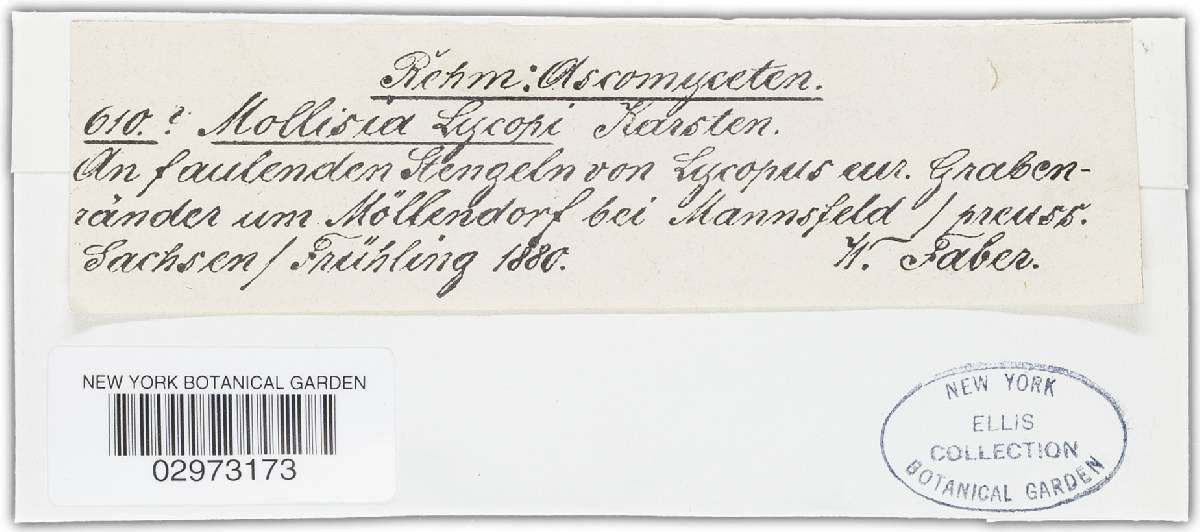 Rehm: Ascomyceten.
610.? Mollisia Lycopi Karsten.
An faulenden Stengeln von Lycopus eur. Graben-
ränder um Möllendorf bei Mannsfeld / preuss.
Sachsen / Frühling 1880. Faber.
NEW YORK BOTANICAL GARDEN
02973173
NEW YORK
ELLIS
COLLECTION
BOTANICAL GARDEN